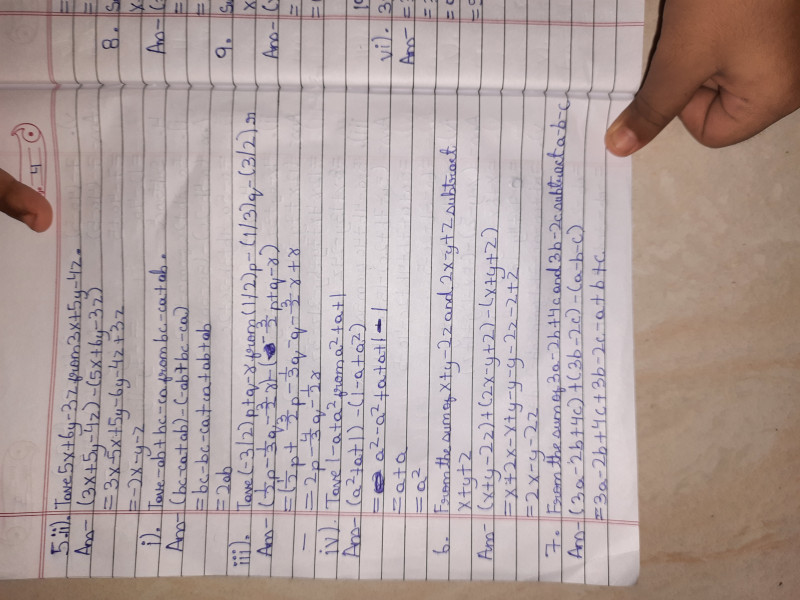 4
5.ii). Take 5x+6y-3z from 3x+5y-4z.
Ans- (3x+5y-4z)-(5x+6y-3z)
= 3x-5x+5y-6y-4z+3z
= -2x-y-z
i). Take -ab+bc-ca from bc-ca+ab.
Ans- (bc-ca+ab)-(-ab+bc-ca)
= bc-bc-ca+ca+ab+ab
= 2ab
iii). Take (-3/2)p+q-r from (1/2)p-(1/3)q-(3/2)r
Ans- (1/2p-1/3q-3/2r)-(-3/2p+q-r)
= (1/2p+3/2p-1/3q-q-3/2r+r
= 2p-4/3q-1/2r
iv). Take 1-a+a² from a²+a+1
Ans- (a²+a+1)-(1-a+a²)
= a²-a²+a+a+1-1
= a+a
= a²
6. From the sum of x+y-2z and 2x-y+z subtract
x+y+z
Ans- (x+y-2z)+(2x-y+z)-(x+y+z)
= x+2x-x+y-y-y-2z-z+z
= 2x-y-2z
7. From the sum of 3a-2b+4c and 3b-2c subtract a-b-c
Ans- (3a-2b+4c)+(3b-2c)-(a-b-c)
= 3a-2b+4c+3b-2c-a+b+c
8.
Ans-
9.
Ans-
vi).
Ans-